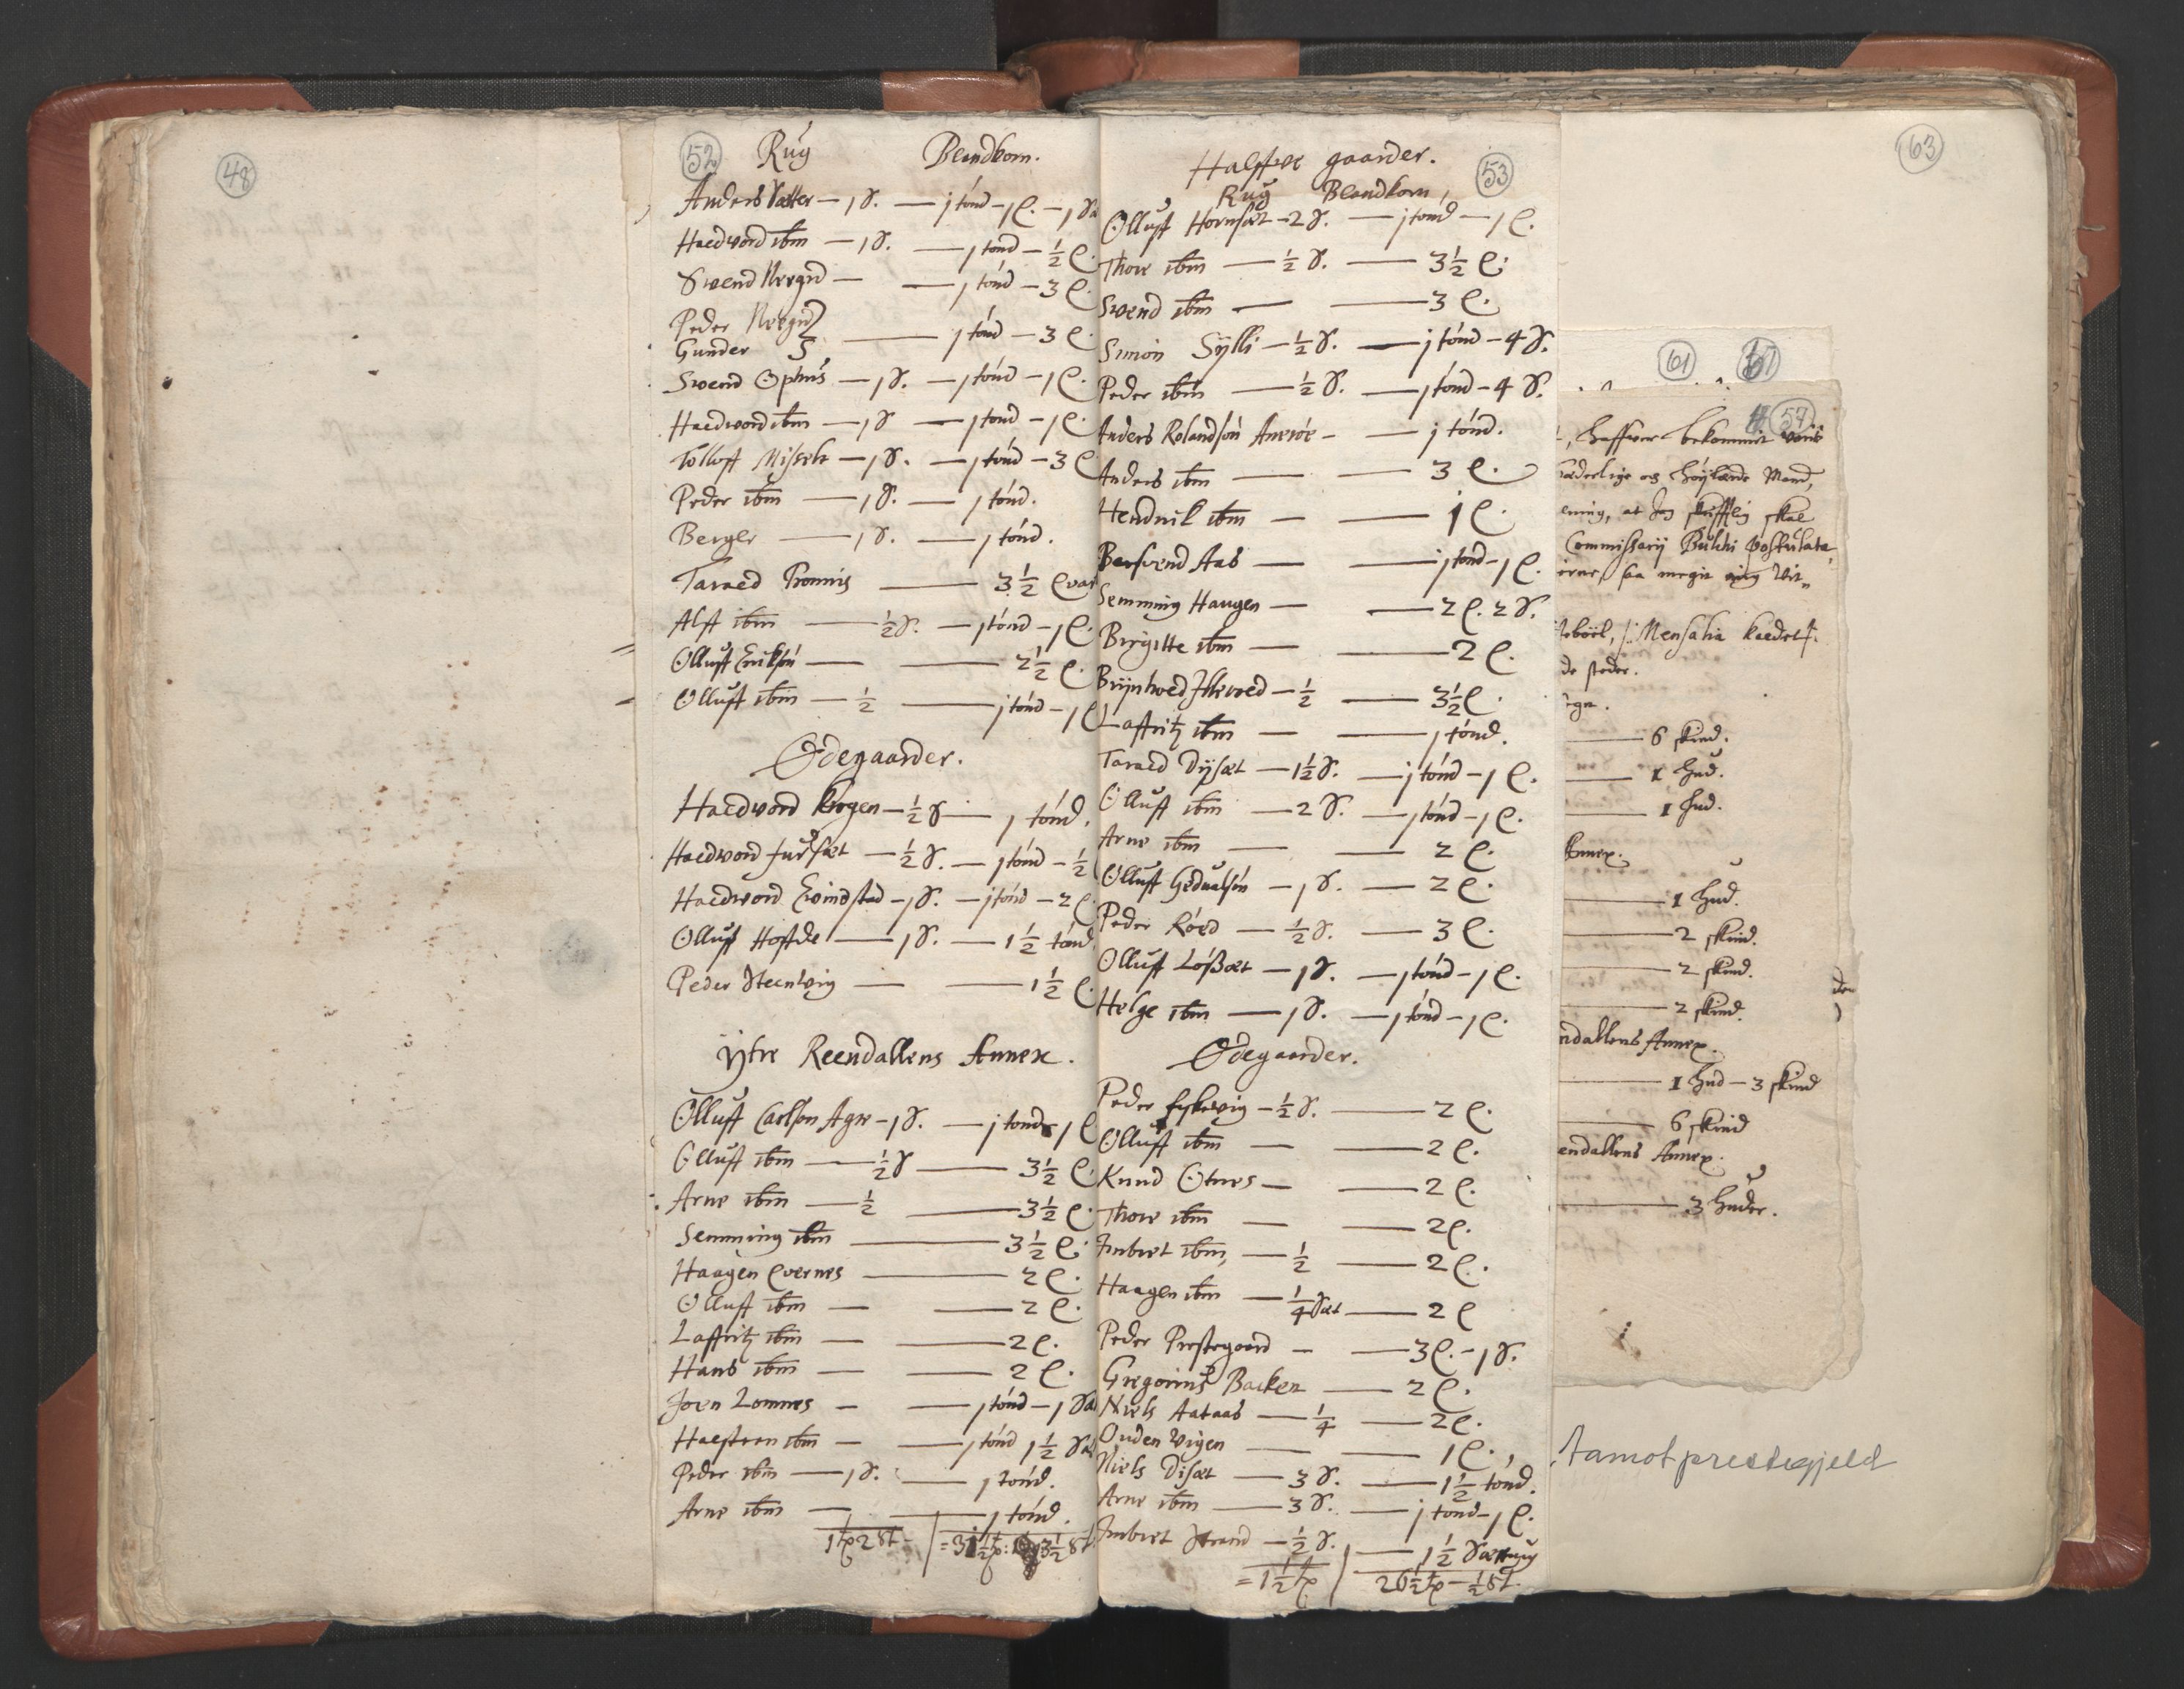 48
52
Rug Blandkorn.
Anders Satter — 1 S. — 1 tönd — 1 C. — 1 Sæ
Haldword ibm — 1 S. — 1 tönd — ½ C.
Swend Nergrd — — 1 tönd — 3 C.
Peder Nergrd
Gunder — 1 tönd — 3 C.
Swend Ophus — 1 S. — 1 tönd — 1 C.
Haldword ibm — 1 S — 1 tönd — 1 C.
Tolloff Missell — 1 S. — 1 tönd — 3 C
Peder ibm — 1 S. — 1 tönd.
Berger — 1 S. — 1 tönd.
Tarald Fronnis — 3½ Cvar
Alff ibm — ½ S. — 1 tönd — 1 C.
Olluff Erikssön — — 2½ C.
Olluff ibm — ½ — 1 tönd — 1 C
Ødegaarder.
Haldword Krogen — ½ S — 1 tönd.
Haldword fursæt — ½ S. — 1 tönd — ½
Haldword Evindstad — 1 S. — 1 tönd — 2 C
Olluff Hoffde — 1 S. — 1½ tönd.
Peder Steenwig — — 1½ C.
Ÿtre Reendallens Annex.
Olluff Carlson Agre — 1 S. — 1 tönd 1 C
Olluff ibm — ½ S — 3½ C.
Arne ibm — ½ — 3½ C.
Semming ibm — 3½ C.
Haagen Evernes — 2 C.
Olluff ibm — — 2 C.
Laffritz ibm — — 2 C.
Hans ibm — — 2 C.
Joen Lomnes — — 1 tönd — 1 Sæ
Halstten ibm — — 1 tönd 1½ Sæ
Peder ibm — 1 S. — 1 tönd.
Arne ibm — — 1 tönd.
Halffue gaarder.
53
Rug Blandkorn,
Olluff Hornsæt — 2 S. — 1 tönd — 1 C.
Thore ibm — ½ S. — 3½ C.
Swend ibm — — 3 C.
Simon Sylli — ½ S. — 1 tönd — 4 S.
Peder ibm — ½ S. — 1 tönd — 4 S.
Anders Rolandsön — — 1 tönd.
Anders ibm — — 3 C.
Hendrik ibm — — 1 C.
Bersvend Aas — — 1 tönd — 1 C.
Semming Haugen — — 2 C. 2 S.
Birgitte ibm — — 2 C.
Brynhoed — ½ — 3½ C.
Laffritz ibm — — 1 tönd.
Tarald Dysæt — 1½ S. — 1 tönd — 1 C.
Olluff ibm — 2 S. — 1 tönd — 1 C.
Arne ibm — — 2 C.
Olluff — 1 S. — 2 C.
Peder Röed — ½ S. — 3 C.
Olluff Lößæt — 1 S. — 1 tönd — 1 C.
Helge ibm — 1 S. — 1 tönd — 1 C.
Ødegaarder.
Peder fyskvig — ½ S. — 2 C.
Olluff ibm — — 2 C.
Knud Otnes — — 2 C.
Thore ibm — — 2 C.
Imbret ibm, — ½ — 2 C.
Haagen ibm — ¼ Sæt — 2 C
Peder Prestegaard — — 3 C. — 1 S.
Gregorius Backen — 2 C.
Niels Aataas — ¼ — 2 C.
Ouden Vigen — — 1 C.
Niels Disæt — 3 S. — 1½ tönd.
Arne ibm — 3 S. — 1 tönd — 1 C.
Imbret Strand — ½ S. — 1½ Sætting
63
61
57
haffuer bekommit
hæderlige oc höylærde Mand,
at Jeg skrifftlig skal
Commissarij Postulata
saa megit
Mensalia kaldet
de steder.
6 skind.
1 hud.
1 hud.
Annex.
1 hud.
2 skind.
2 skind.
2 skind.
ndallens Annex.
1 hud — 3 skind
6 skind
endallens Annex.
3 huder.
Aamot prestegjeld